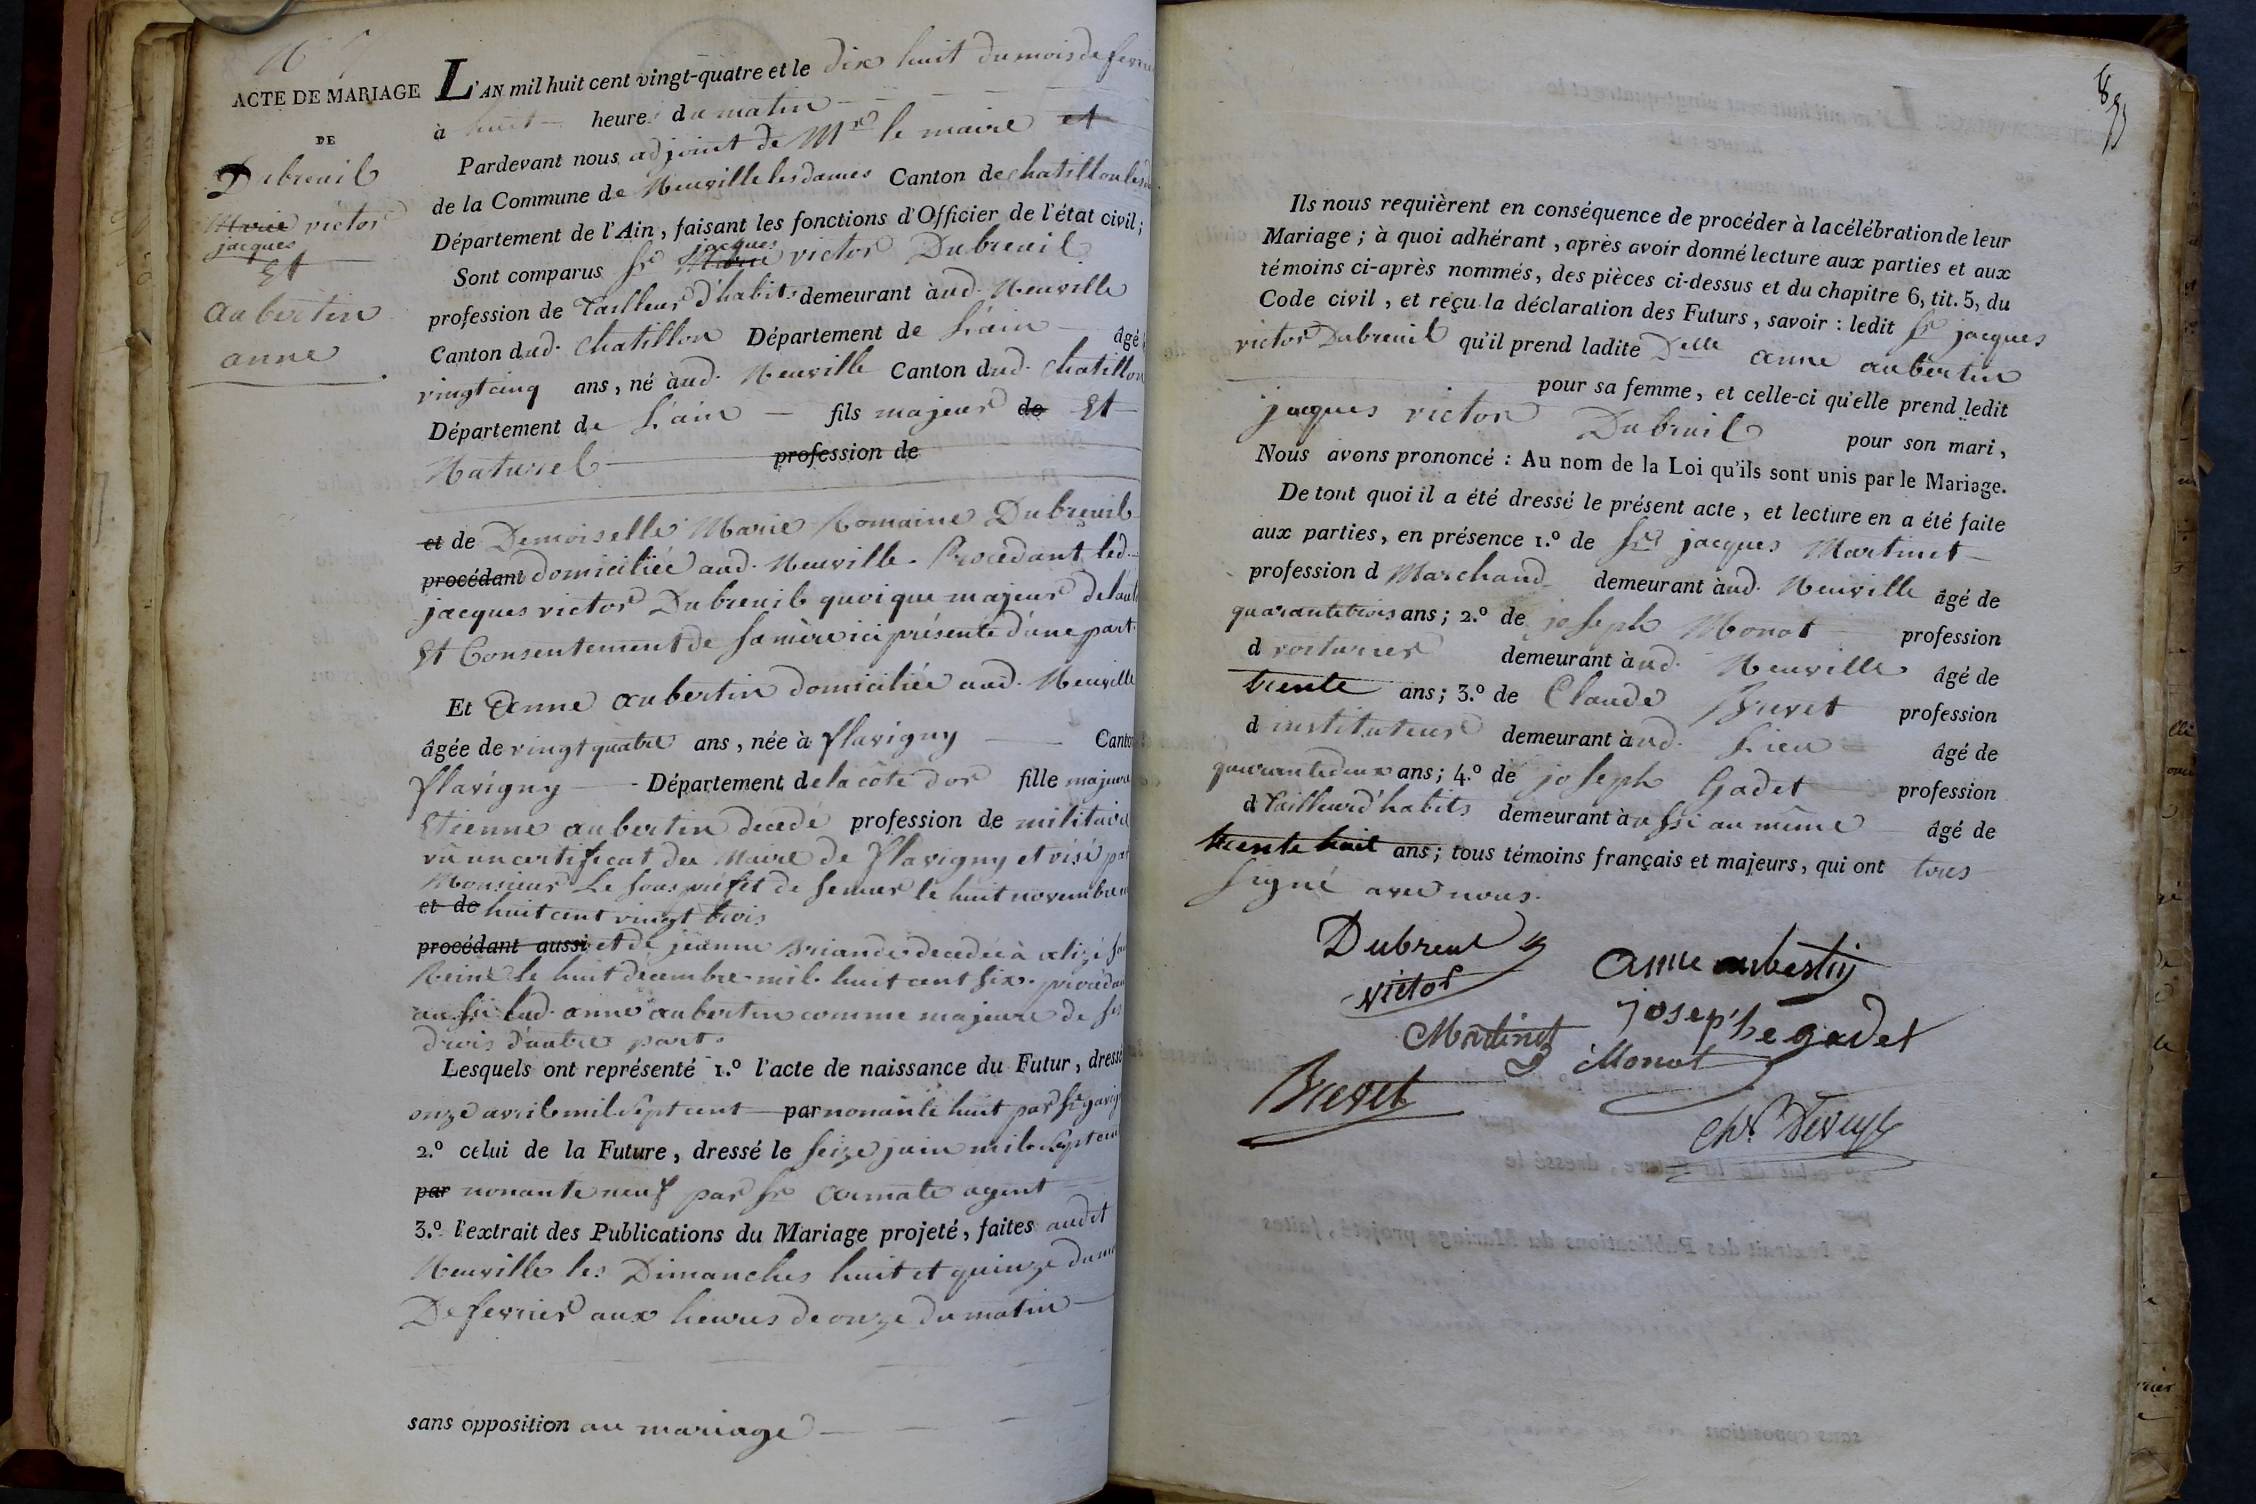 ACTE DE MARIAGE
DE
Dubreuil
Marie victor
jacques
Et
aubertin
anne
L'AN mil huit cent vingt-quatre et le dix huit du mois de fevrier
à huit heures du matin
Pardevant nous adjoint de Mr le maire et
de la Commune de Neuville les dames Canton de chatillon les
Département de l'Ain, faisant les fonctions d'Officier de l'état civil;
jacques
Sont comparus Sr Marie victor Dubreuil
profession de Tailleur d'habits demeurant aud. Neuville
Canton dud. Chatillon Département de L'ain âgé
vingt cinq ans, né àud. Neuville Canton dud. Chatillon
Département de L'ain fils majeur de Et
Naturel profession de
et de Demoiselle Marie Romaine Dubreuil
procédant domiciliée aud. Neuville. Procédant led.
jacques victor Dubreuil quoique majeur de l'aut
Et Consentement de sa mère ici présente d'une part.
Et anne aubertin domiciliée aud. Neuville
âgée de vingt quatre ans, née à flavigny Canton
flavigny Département de la côte d'or fille majeure
Etienne aubertin decedé profession de militaire
vû un certificat du Maire de flavigny et visé par
Monsieur Le Sous préfet de Semur le huit novembre
et de huit cent vingt trois
procédant aussi et de jeanne Briande decedée à alize
Reine le huit decembre mil huit cent six. procédant
aussi lad. anne aubertin comme majeure de ses
droits d'autre part.
Lesquels ont représenté 1.º l'acte de naissance du Futur, dressé
onze avril mil sept cent par nonante huit par Sr
2.º celui de la Future, dressé le seize juin mil sept cent
par nonante neuf par Sr agent
3.º l'extrait des Publications du Mariage projeté, faites audit
Neuville les Dimanches huit et quinze du mois
De fevrier aux heures de onze du matin
sans opposition au mariage
Ils nous requièrent en conséquence de procéder à la célébration de leur
Mariage; à quoi adhérant, après avoir donné lecture aux parties et aux
témoins ci-après nommés, des pièces ci-dessus et du chapitre 6, tit. 5, du
Code civil, et reçu la déclaration des Futurs, savoir: ledit Sr jacques
victor Dubreuil qu'il prend ladite Delle anne aubertin
pour sa femme, et celle-ci qu'elle prend ledit
jacques victor Dubreuil pour son mari,
Nous avons prononcé: Au nom de la Loi qu'ils sont unis par le Mariage.
De tout quoi il a été dressé le présent acte, et lecture en a été faite
aux parties, en présence 1.º de Srs jacques Martinet
profession d Marchand demeurant àud. Neuville âgé de
quarante trois ans; 2.º de joseph Monat profession
d voiturier demeurant àud. Neuville âgé de
trente ans; 3.º de Claude Brevet profession
d instituteur demeurant àud. Lieu âgé de
quarante deux ans; 4.º de joseph Gadet profession
d Tailleur d'habits demeurant àussi au même âgé de
trente huit ans; tous témoins français et majeurs, qui ont tous
signé avec nous.
Dubreul
victor
anne aubertin
josephe gadet
Martinet
Monat
Brevet